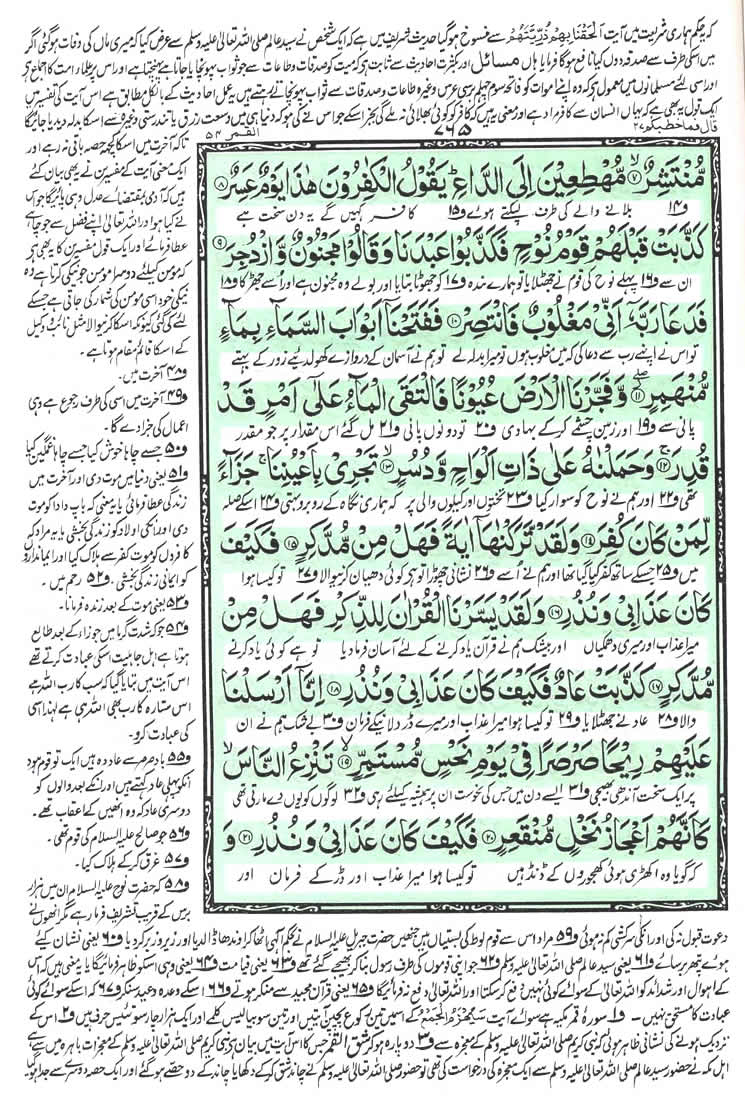 کہ یہ حکم ہماری شریعت میں آیت اَلْحَقْنَا بِهِمْ ذُرِّیَّتَهُمْ سے منسوخ ہوگیا حدیث شریف میں ہے کہ ایک شخص نے سید عالم صلی اللہ تعالیٰ علیہ وسلم سے عرض کیا کہ میری ماں کی وفات ہوگئی اگر
میں اسکی طرف سے صدقہ دوں کیا نافع ہوگا فرمایا ہاں مسائل اور بکثرت احادیث سے ثابت ہے کہ میت کو صدقات و طاعات سے جو ثواب پہونچایا جاتا ہے پہنچتا ہے اور اس پر علماء امت کا اجماع ہے
اور اسی لئے مسلمانوں میں معمول ہے کہ وہ اپنے اموات کو فاتحہ سوم چہلم برسی عرس وغیرہ طاعات و صدقات سے ثواب پہونچاتے رہتے ہیں یہ عمل احادیث کے بالکل مطابق ہے اس آیت کی تفسیر میں
ایک قول یہ بھی ہے کہ یہاں انسان سے کافر مراد ہے اور معنی یہ ہیں کہ کافر کو کوئی بھلائی نہ ملے گی بجز اسکے جو اس نے کی ہو کہ دنیا ہی میں وسعت رزق یا تندرستی وغیرہ سے اسکا بدلہ دیدیا جائیگا
قال فما خطبکم ۲۷
۷۶۵
القمر ۵۴
مُّنْتَشِرٌ ۙ۷ مُّهْطِعِیْنَ اِلَی الدَّاعِ ؕ یَقُوْلُ الْكٰفِرُوْنَ هٰذَا یَوْمٌ عَسِرٌ ۸
ف۱۴ بلانے والے کی طرف لپکتے ہوئے ف۱۵ کافر کہیں گے یہ دن سخت ہے
كَذَّبَتْ قَبْلَهُمْ قَوْمُ نُوْحٍ فَكَذَّبُوْا عَبْدَنَا وَ قَالُوْا مَجْنُوْنٌ وَّ ازْدُجِرَ ۹
ان سے ف۱۶ پہلے نوح کی قوم نے جھٹلایا تو ہمارے بندہ ف۱۷ کو جھوٹا بتایا اور بولے وہ مجنون ہے اور اُسے جھڑکا ف۱۸
فَدَعَا رَبَّهٗۤ اَنِّیْ مَغْلُوْبٌ فَانْتَصِرْ ۱۰ فَفَتَحْنَاۤ اَبْوَابَ السَّمَآءِ بِمَآءٍ
تو اس نے اپنے رب سے دعا کی کہ میں مغلوب ہوں تو میرا بدلہ لے تو ہم نے آسمان کے دروازے کھول دیئے زور کے بہتے
مُّنْهَمِرٍ ۖ۱۱ وَّ فَجَّرْنَا الْاَرْضَ عُیُوْنًا فَالْتَقَی الْمَآءُ عَلٰۤی اَمْرٍ قَدْ
پانی سے ف۱۹ اور زمین چشمے کرکے بہا دی ف۲۰ تو دونوں پانی ف۲۱ مل گئے اس مقدار پر جو مقدر
قُدِرَ ۚ۱۲ وَ حَمَلْنٰهُ عَلٰی ذَاتِ اَلْوَاحٍ وَّ دُسُرٍ ۙ۱۳ تَجْرِیْ بِاَعْیُنِنَا ۚ جَزَآءً
تھی ف۲۲ اور ہم نے نوح کو سوار کیا ف۲۳ تختوں اور کیلوں والی پر کہ ہماری نگاہ کے روبرو بہتی ف۲۴ اسکے صلہ
لِّمَنْ كَانَ كُفِرَ ۱۴ وَ لَقَدْ تَّرَكْنٰهَاۤ اٰیَةً فَهَلْ مِنْ مُّدَّكِرٍ ۱۵ فَكَیْفَ
میں ف۲۵ جسکے ساتھ کفر کیا گیا تھا اور ہم نے اُسے ف۲۶ نشانی چھوڑا تو ہے کوئی دھیان کرنیوالا ف۲۷ تو کیسا ہوا
كَانَ عَذَابِیْ وَ نُذُرِ ۱۶ وَ لَقَدْ یَسَّرْنَا الْقُرْاٰنَ لِلذِّكْرِ فَهَلْ مِنْ
میرا عذاب اور میری دھمکیاں اور بیشک ہم نے قرآن یاد کرنے کے لئے آسان فرمادیا تو ہے کوئی یاد کرنے
مُّدَّكِرٍ ۱۷ كَذَّبَتْ عَادٌ فَكَیْفَ كَانَ عَذَابِیْ وَ نُذُرِ ۱۸ اِنَّاۤ اَرْسَلْنَا
والا ف۲۸ عاد نے جھٹلایا ف۲۹ تو کیسا ہوا میرا عذاب اور میرے ڈر دلانیکے فرمان ف۳۰ بے شک ہم نے ان
عَلَیْهِمْ رِیْحًا صَرْصَرًا فِیْ یَوْمِ نَحْسٍ مُّسْتَمِرٍّ ۙ۱۹ تَنْزِعُ النَّاسَ ۙ
پر ایک سخت آندھی بھیجی ف۳۱ ایسے دن میں جس کی نحوست ان پر ہمیشہ کیلئے رہی ف۳۲ لوگوں کو یوں دے مارتی تھی
كَاَنَّهُمْ اَعْجَازُ نَخْلٍ مُّنْقَعِرٍ ۲۰ فَكَیْفَ كَانَ عَذَابِیْ وَ نُذُرِ ۲۱ وَ
کہ گویا وہ اکھڑی ہوئی کھجوروں کے ڈنڈ ہیں تو کیسا ہوا میرا عذاب اور ڈر کے فرمان اور
تاکہ آخرت میں اسکا کچھ حصہ باقی نہ رہے اور
ایک معنی آیت کے مفسرین نے یہ بھی بیان کئے
ہیں کہ آدمی بمقتضائے عدل وہی پائیگا جو اس
نے کیا ہو اور اللہ تعالیٰ اپنے فضل سے جو چاہے
عطا فرمائے اور ایک قول مفسرین کا یہ بھی ہے
کہ مومن کیلئے دوسرا مومن جو نیکی کرتا ہے وہ
نیکی خود اسی مومن کی شمار کی جاتی ہے جسکے
لئے کی گئی کیونکہ اسکا کرنیوالا مثل نائب و وکیل
کے اسکا قائم مقام ہوتا ہے ۔
ف۴۸ آخرت میں۔
ف۴۹ آخرت میں اسی کی طرف رجوع ہے وہی
اعمال کی جزا دے گا۔
ف۵۰ جسے چاہا خوش کیا جسے چاہا غمگین کیا
ف۵۱ یعنی دنیا میں موت دی اور آخرت میں
زندگی عطا فرمائی یا یہ معنی کہ باپ دادا کو موت
دی اور انکی اولاد کو زندگی بخشی یا یہ مراد کہ
کافروں کو موت کفر سے ہلاک کیا اور ایمانداروں
کو ایمانی زندگی بخشی ۔ ف۵۲ رحم میں ۔
ف۵۳ یعنی موت کے بعد زندہ فرمانا۔
ف۵۴ جو کہ شدت گرما میں جوزاء کے بعد طالع
ہوتا ہے اہل جاہلیت اسکی عبادت کرتے تھے
اس آیت میں بتایا گیا کہ سب کا رب اللہ ہے
اس ستارہ کا رب بھی اللہ ہی ہے لہٰذا اسی
کی عبادت کرو۔
ف۵۵ باد صرصر سے عاد دو ہیں ایک تو قوم ہود
انکو پہلی عاد کہتے ہیں اور انکے بعد والوں کو
دوسری عاد کہ وہ انہیں کے اعقاب تھے ۔
ف۵۶ جو صالح علیہ السلام کی قوم تھی ۔
ف۵۷ غرق کرکے ہلاک کیا ۔
ف۵۸ کہ حضرت نوح علیہ السلام ان میں ہزار
برس کے قریب تشریف فرما رہے مگر انھوں نے
دعوت قبول نہ کی اور انکی سرکشی کم نہ ہوئی ف۵۹ مراد اس سے قوم لوط کی بستیاں ہیں جنھیں حضرت جبریل علیہ السلام نے بحکم الٰہی اٹھا کر اوندھا ڈالدیا اور زیر و زبر کردیا ف۶۰ یعنی نشان کئے
ہوئے پتھر برسائے ف۶۱ یعنی سید عالم صلی اللہ تعالیٰ علیہ وسلم ف۶۲ جو اپنی قوموں کی طرف رسول بنا کر بھیجے گئے تھے ف۶۳ یعنی قیامت ف۶۴ یعنی وہی اسکو ظاہر فرمائیگا یا یہ معنی ہیں کہ اس
کے اہوال اور شدائد کو اللہ تعالیٰ کے سوائے کوئی نہیں دفع کرسکتا اور اللہ تعالیٰ دفع نہ فرمائیگا ف۶۵ یعنی قرآن مجید سے منکر ہوتے ف۶۶ اسکے وعدہ وعید سنکر ف۶۷ کہ اسکے سوائے کوئی
عبادت کا مستحق نہیں ۔ ف۱ سورۂ قمر مکیہ ہے سوائے آیت سَیُهْزَمُ الْجَمْعُ کے اسمیں تین رکوع پچپن آیتیں اور تین سو بیالیس کلمے اور ایک ہزار چار سو تئیس حرف ہیں ف۲ اس کے
نزدیک ہونے کی نشانی ظاہر ہوئی کہ نبی کریم صلی اللہ تعالیٰ علیہ وسلم کے معجزہ سے ف۳ دو پارہ ہو کر شق القمر جس کا اس آیت میں بیان ہے نبی کریم صلی اللہ تعالیٰ علیہ وسلم کے معجزات باہرہ میں سے ہے
اہل مکہ نے حضور سید عالم صلی اللہ تعالیٰ علیہ وسلم سے ایک معجزہ کی درخواست کی تھی تو حضور صلی اللہ تعالیٰ علیہ وسلم نے چاند شق کرکے دکھایا چاند کے دو حصے ہوگئے اور ایک حصہ دوسرے سے جدا ہوگیا